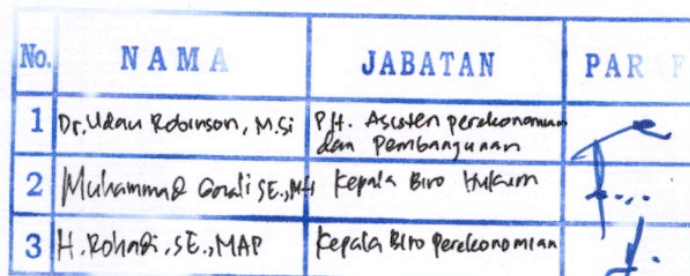 No. NAMA JABATAN PARAF
1 Dr. Udau Robinson, M.Si PH. Asisten perekonomian
dan Pembangunan
2 Muhammad Gorali SE., MH Kepala Biro Hukum
3 H. Rohadi, SE., MAP Kepala Biro perekonomian